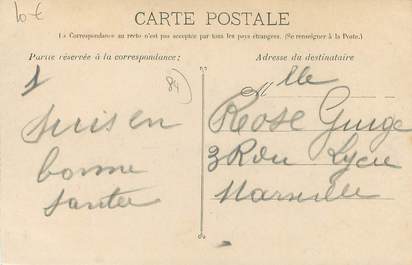 10 €
CARTE POSTALE
La Correspondance au recto n'est pas acceptée par tous les pays étrangers. (Se renseigner à la Poste.)
Partie réservée à la correspondance:
Adresse du destinataire
1
84)
suis en
bonne
santée
Mlle
Rose
3 R du Lycée
Marseille